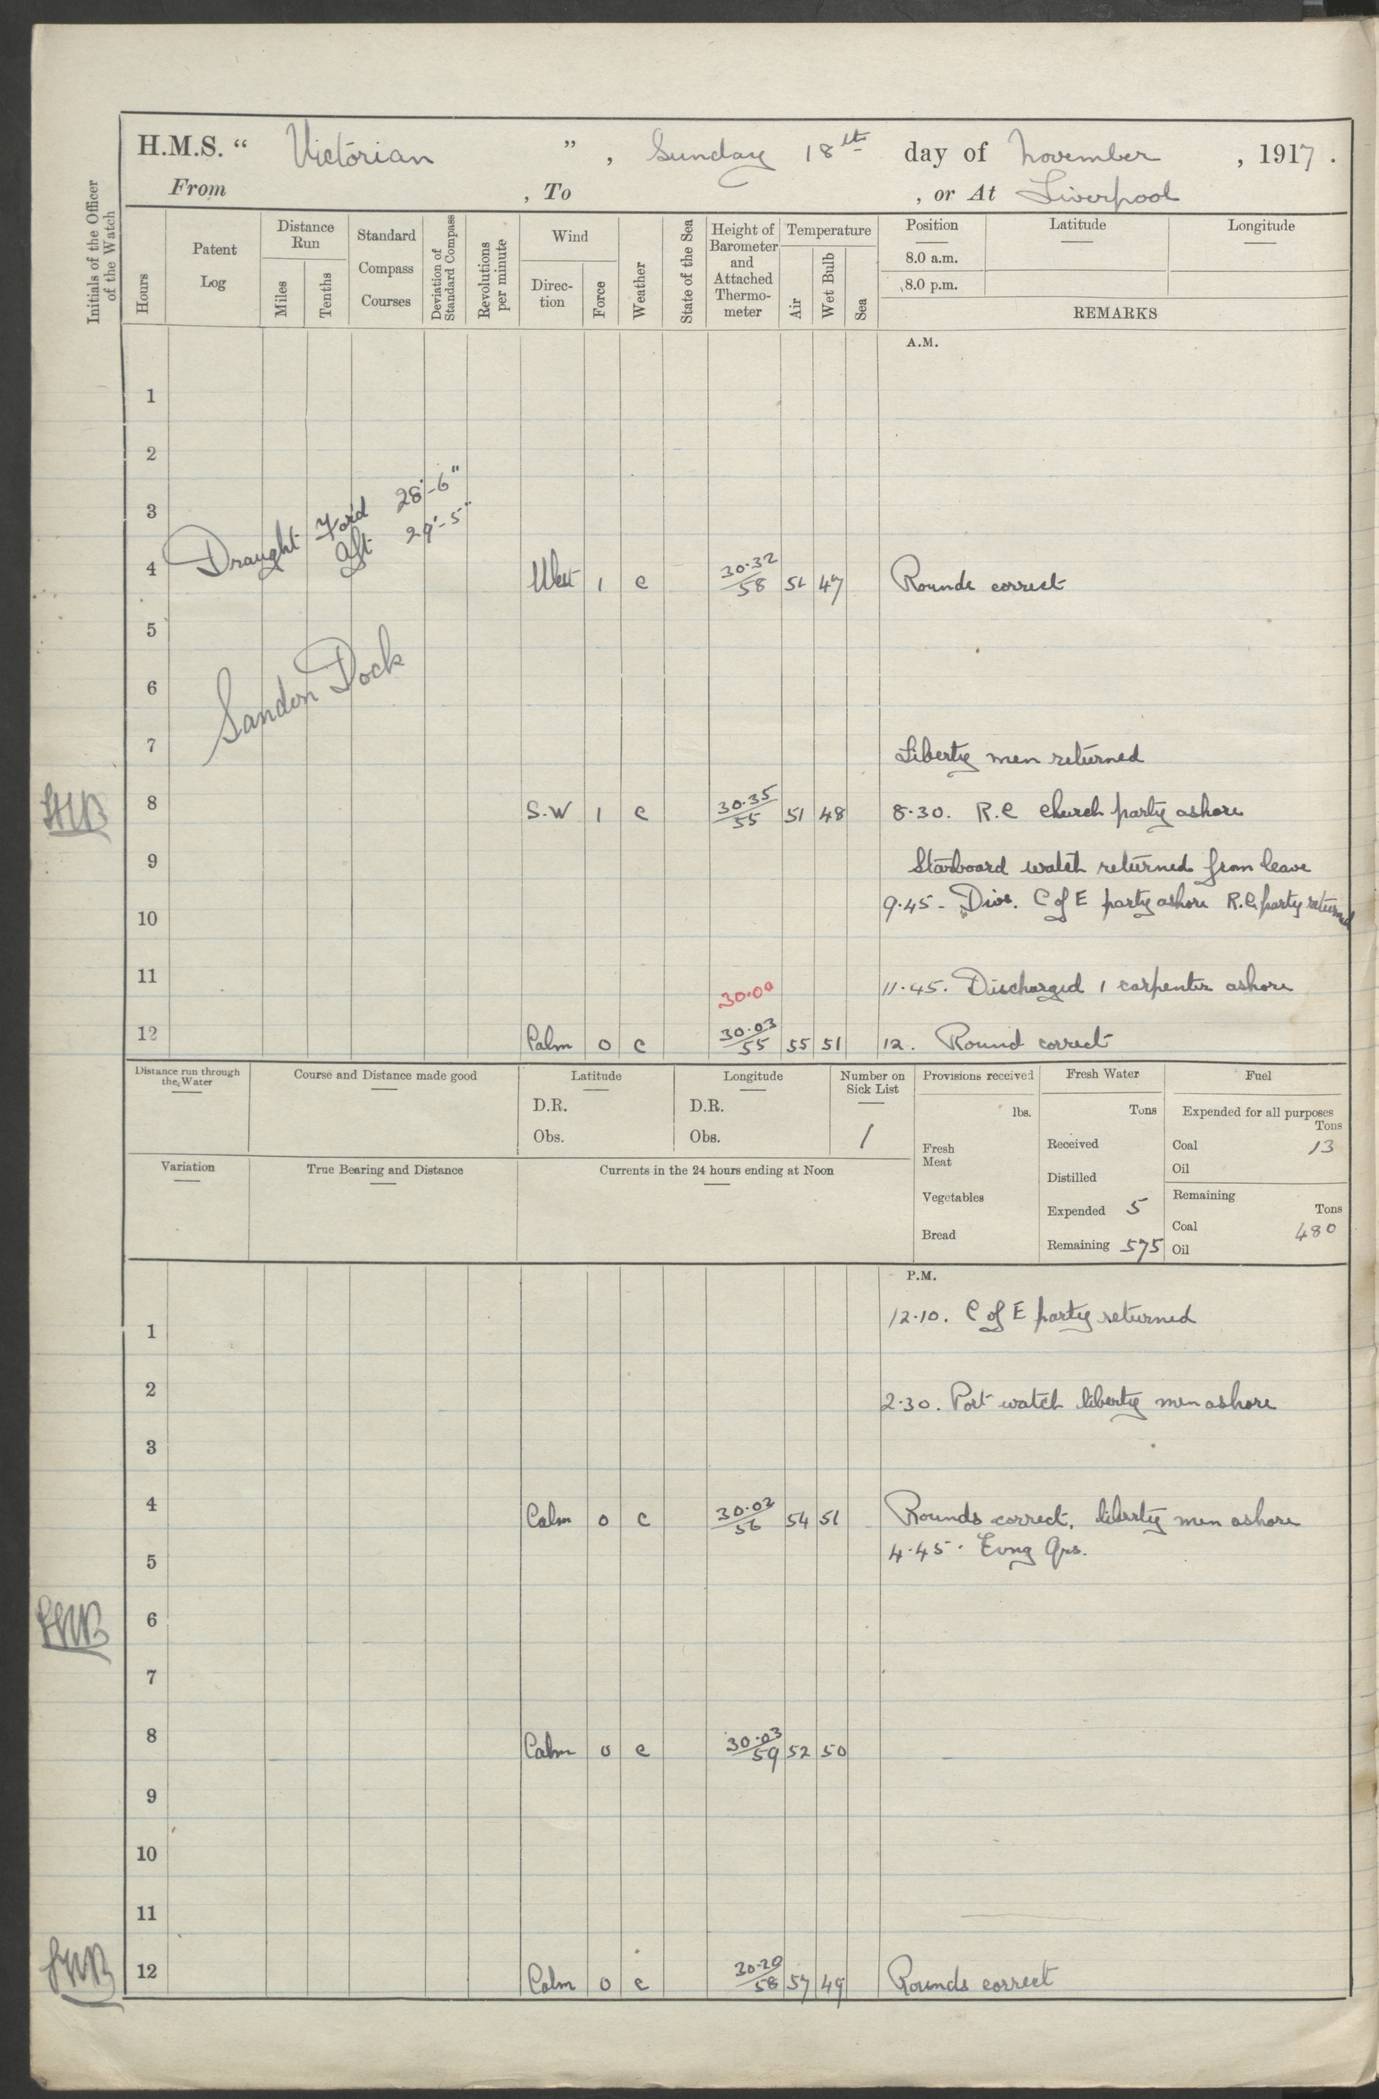 H.M.S. “ Victorian ” , Sunday 18th day of November , 1917 .
From , To , or At Liverpool
Initials of the Officer of the Watch
Hours
Patent Log
Distance Run
Miles
Tenths
Standard Compass Courses
Deviation of Standard Compass
Revolutions per minute
Wind
Direction
Force
Weather
State of the Sea
Height of Barometer and Attached Thermometer
Temperature
Air
Wet Bulb
Sea
Position Latitude Longitude
8.0 a.m.
8.0 p.m.
REMARKS
A.M.
1
2
3
Draught Ford 28'-6"
Aft 29'-5"
4 West 1 c 30.32/58 47 Rounds correct
5
6
Sandon Dock
7 Liberty men returned
8 S.W 1 c 30.35/55 51 48 8.30. R.C church party ashore
9 Starboard watch returned from leave
9.45- Divs. C of E party ashore R.C. party returned
10
11 11.45. Discharged 1 carpenter ashore
30.00
12 Calm 0 c 30.03/55 55 51 12. Round correct
Distance run through the Water
Course and Distance made good
Latitude
D.R.
Obs.
Longitude
D.R.
Obs.
Number on Sick List
1
Provisions received
lbs.
Fresh Meat
Vegetables
Bread
Fresh Water
Tons
Received
Distilled
Expended 5
Remaining 575
Fuel
Expended for all purposes
Tons
Coal 13
Oil
Remaining
Tons
Coal 480
Oil
Variation
True Bearing and Distance
Currents in the 24 hours ending at Noon
P.M.
12.10. C of E party returned
1
2 2.30. Port watch liberty men ashore
3
4 Calm 0 c 30.02/56 54 51 Rounds correct, liberty men ashore
4.45. Evng Qrs.
5
6
7
8 Calm 0 c 30.03/59 52 50
9
10
11
12 Calm 0 c 30.20/58 57 49 Rounds correct